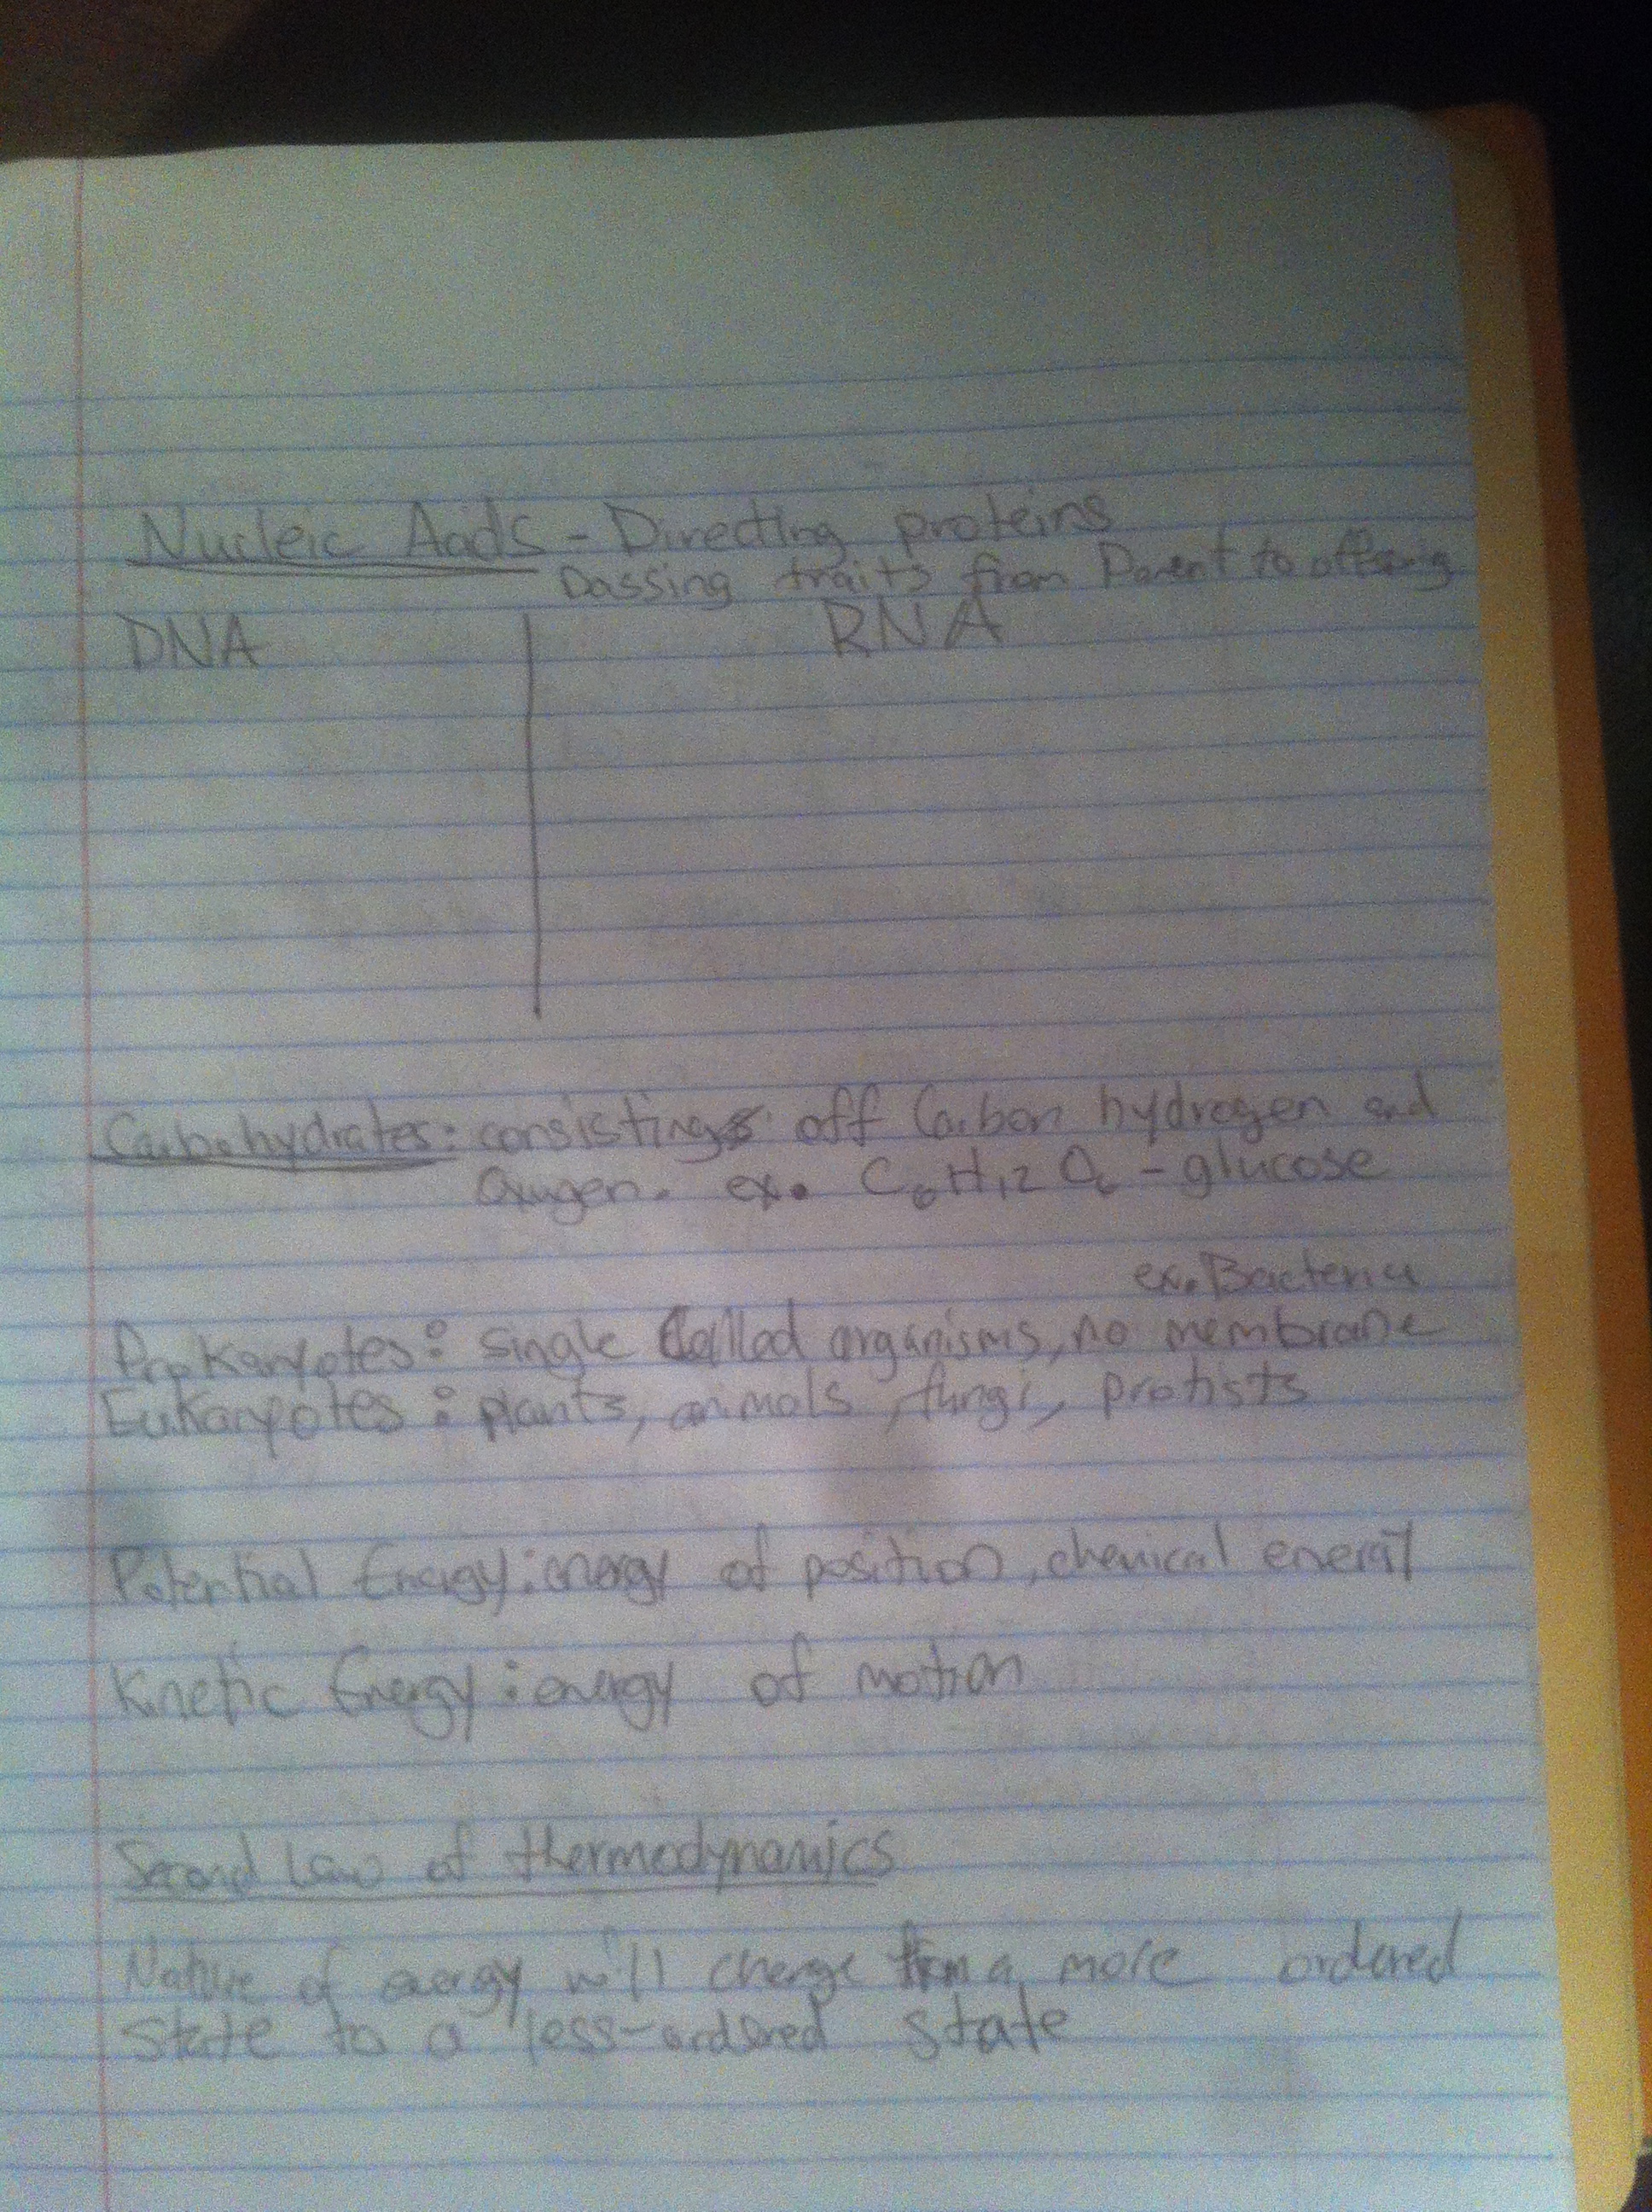 Nucleic Acids - Directing proteins
Passing traits from Parent to offspring
DNA
RNA
Carbohydrates: consisting off Carbon hydrogen and
Oxygen. ex. C₆H₁₂O₆ - glucose
ex. Bacteria
Prokaryotes: single Celled organisms, no membrane
Eukaryotes: plants, animals, fungi, protists
Potential Energy: energy of position, chemical energy
Kinetic Energy: energy of motion
Second Law of thermodynamics
Nature of energy will change from a more ordered
state to a less-ordered state